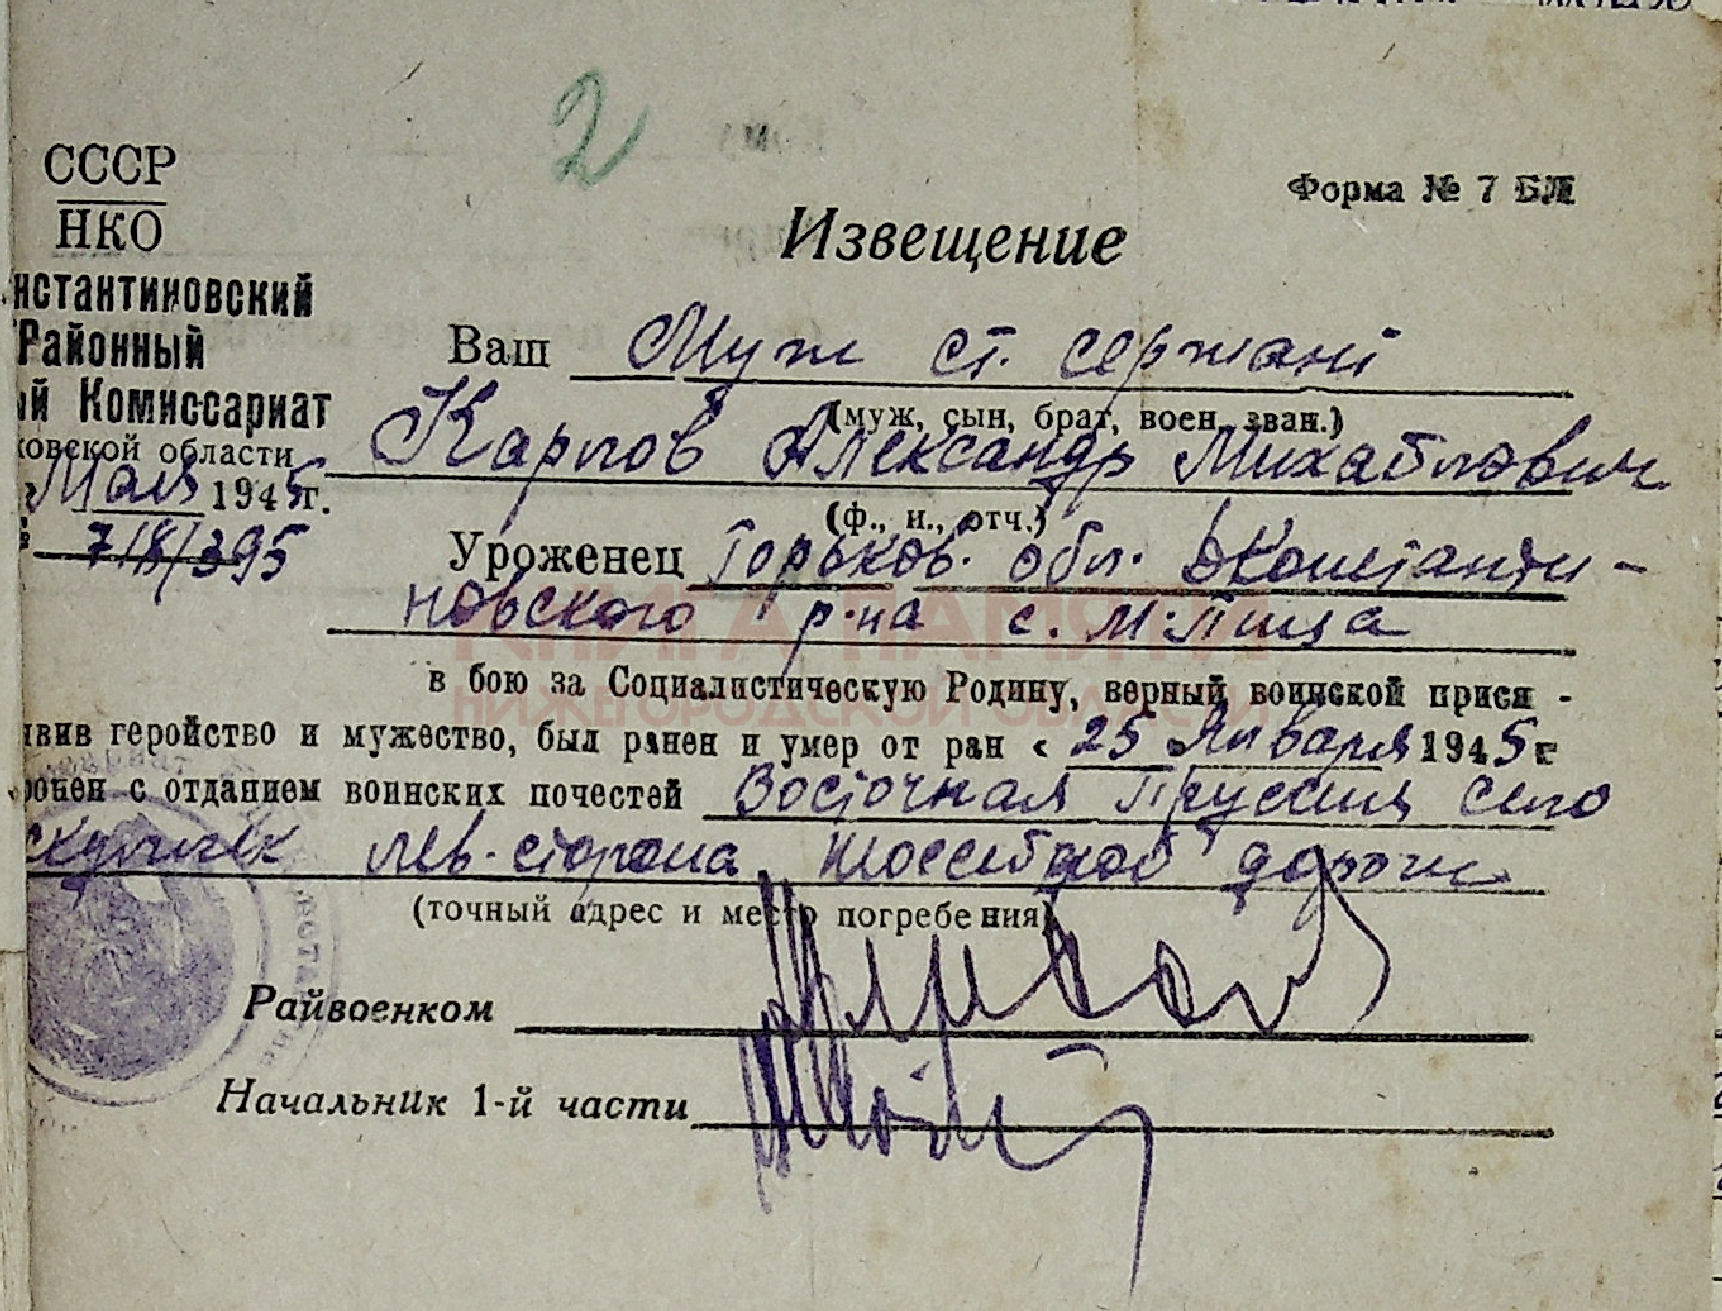 2
СССР
НКО
нстантиновский
Районный
ый Комиссариат
ковской области
Мая 1945г.
7/8/395
Форма № 7 БЛ
Извещение
Ваш Муж ст. сержант
(муж, сын, брат, воен. зван.)
Карпов Александр Михайлович
(ф., и., отч.)
Уроженец Горьков. обл. Дконстанти-
новского р-на с. М. Пица
КНИГА ПАМЯТИ
НИЖЕГОРОДСКОЙ ОБЛАСТИ
в бою за Социалистическую Родину, верный воинской прися-
явив геройство и мужество, был ранен и умер от ран « 25 » Января 1945 г
ронен с отданием воинских почестей Восточная Пруссия село
лев. сторона шоссейной дороги
(точный адрес и место погребения)
Райвоенком
Начальник 1-й части